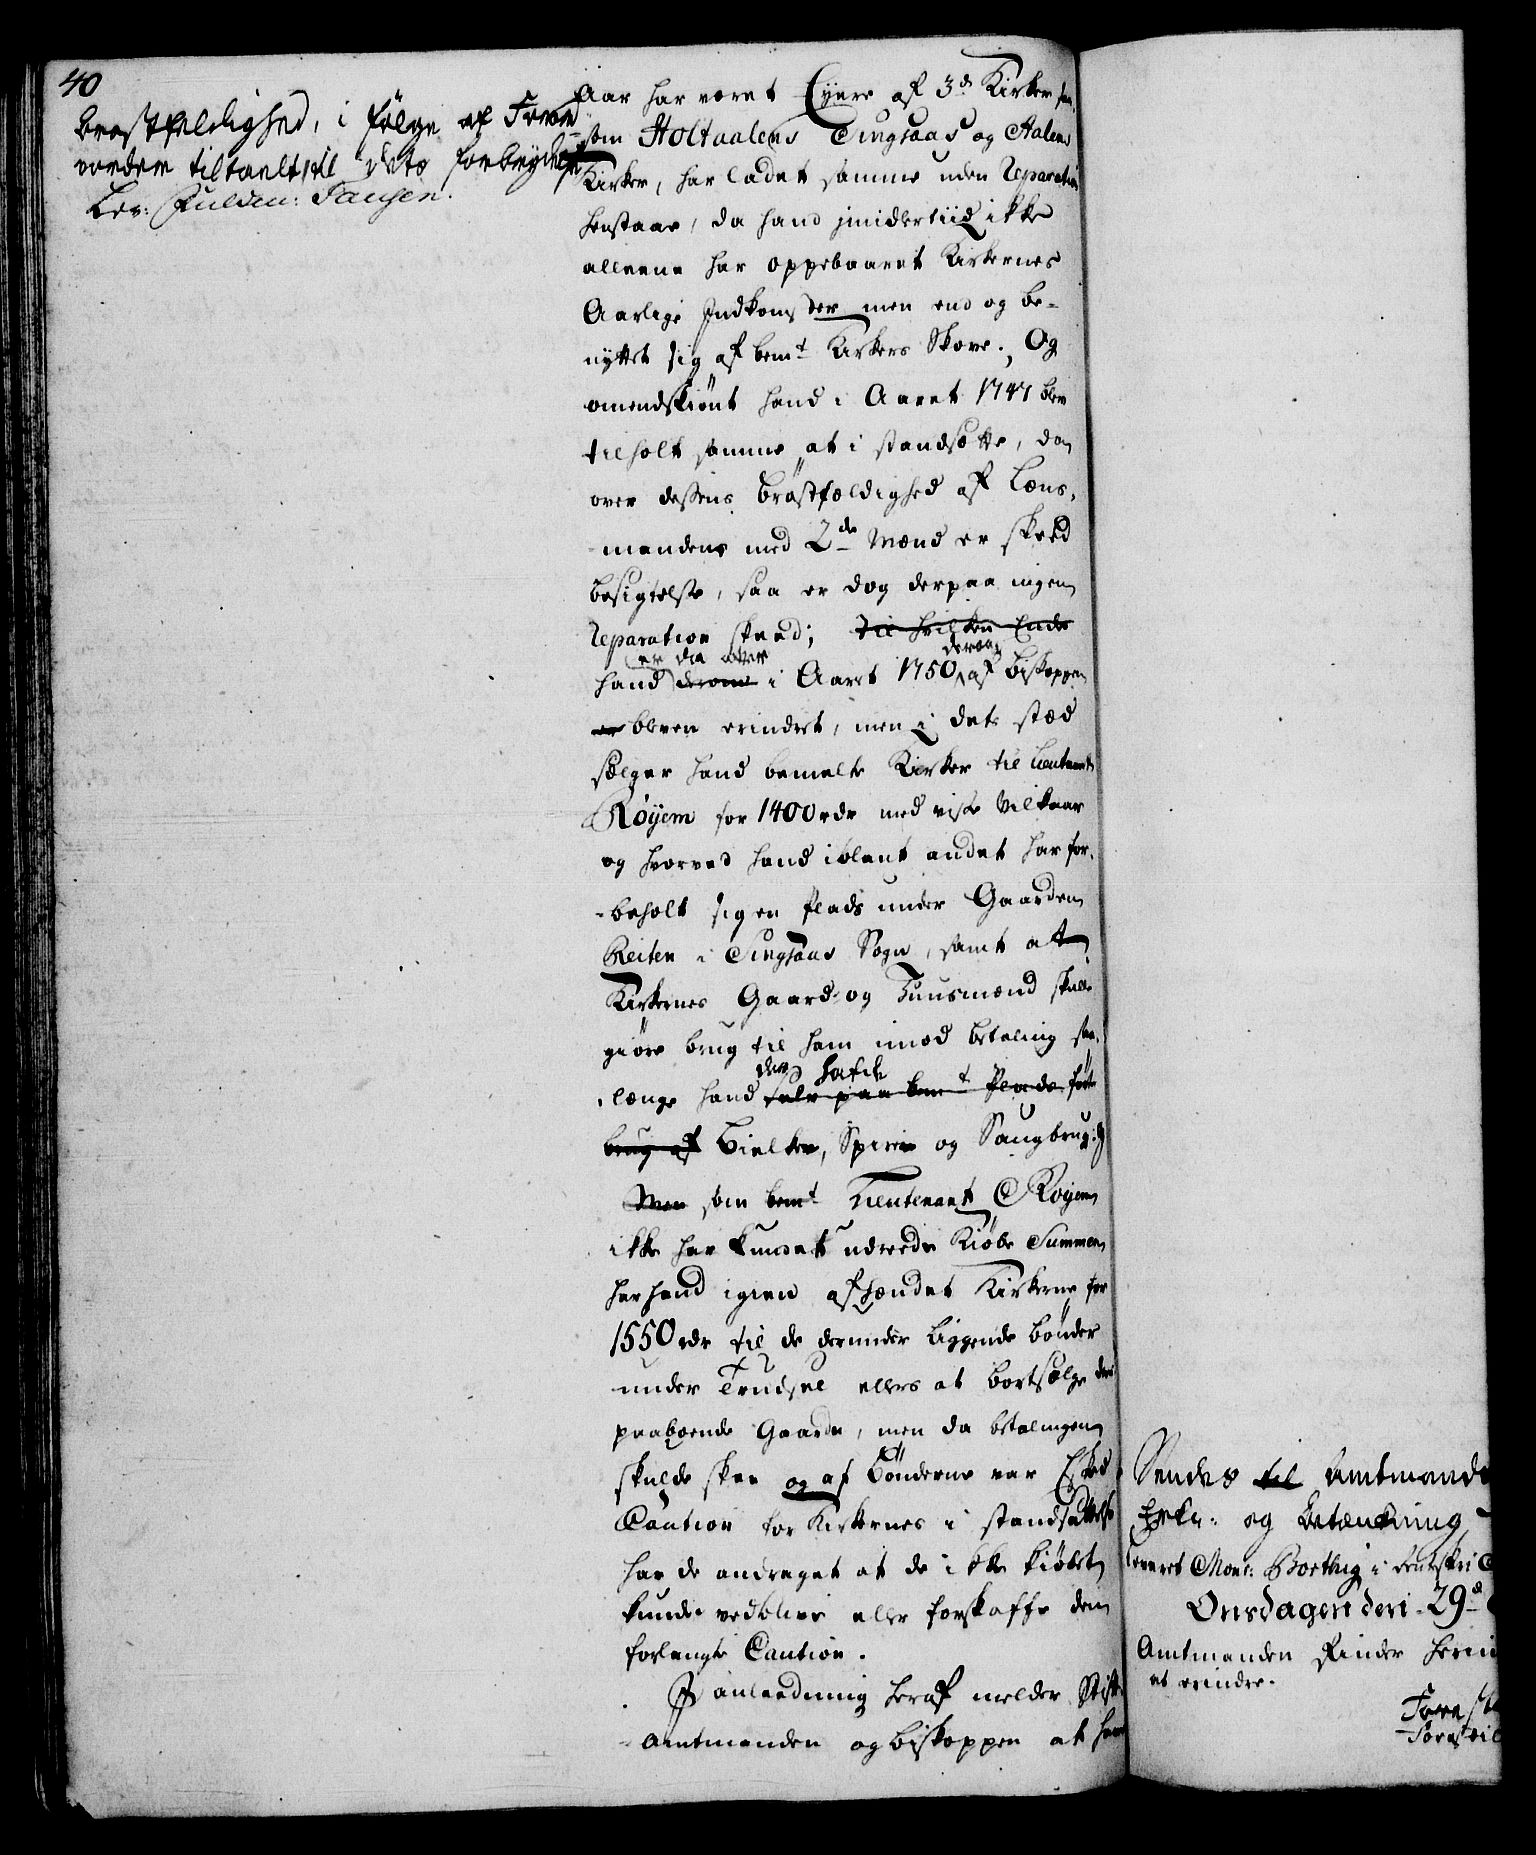 40
brøstfeldighed, i følge af Foror
vorder tiltalt til dets forbrydelse
Lev: Fuldm: Jansen.
Aar har været Eyere af 3de Kirker saa
som Holtaalens Singsaas og Aalens
Kirker, har ladet samme uden Reparation
henstaae, da hand jmidlertiid ikke
alleene har oppebaaret Kirkernes
Aarlige Indkomster men end og be-
nyttet sig af bemt Kirkers Skove. Og
omendskiønt hand i Aaret 1747 blev
tilholt samme at i standsætte, da
over dessens brøstfældighed af Læns-
mandens med 2de Mænd er skeed
besigtelse, saa er dog derpaa ingen
Reparation skeed; til hvilken Ende
er da atter derom
hand derom i Aaret 1750 af Biskoppen
er bleven erindret, men i dets stæd
sælger hand bemelte Kirker til Lieutenant
Røyem for 1400 rdr med visse Vilkaar
og hvorved hand iblant andet har for-
beholt sig en Plads under Gaarden
Reiten i Singsaas Sogn, samt at
Kirkernes Gaard- og Huusmænd skulle
giøre brug til ham imod betaling saa
længe hand selv paa bemt Plads førte
der hafde
brug af Bielker, Spirer og Saugbrug.
Men som bemt Lieutenant Røyem
ikke har kundet udreede Kiøbe Summen
har hand igien afhændet Kirkerne for
1550 rdr til de derunder liggende bønder
under Trudsel ellers at bortsælge deres
paaboende Gaarde, men da betalingen
skulde skee og af Bønderne var Esked
Caution for Kirkernes i standsættelse
har de andraget at de ikke kiøbet
kunde vedblive eller forskaffe den
forlangte Caution.
I anleedning heraf melder Stift
amtmanden og Biskoppen at ham
Sendes til Amtmande
Erkl: og Betænkning
leveret Monr: Boethig i
Onsdagen den 29de
Amtmanden finder herim
at erindre.